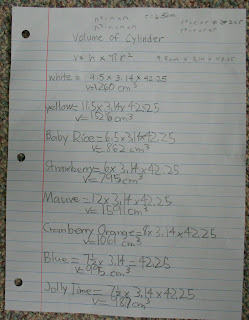 r=6.5cm
Volume of Cylinder
V= h x πr²
white = 9.5 x 3.14 x 42.25
V=1260 cm³
yellow= 11.5 x 3.14 x 42.25
V=1526 cm³
Baby Rice=6.5 x 3.14 x 42.25
V=862 cm³
Strawberry=6 x 3.14 x 42.25
V=795 cm³
Mauve=12 x 3.14 x 42.25
V=1591 cm³
Cranberry Orange=8 x 3.14 x 42.25
V=1061 cm³
Blue = 7½ x 3.14 = 42.25
V=995 cm³
x 3.14 x 42.25